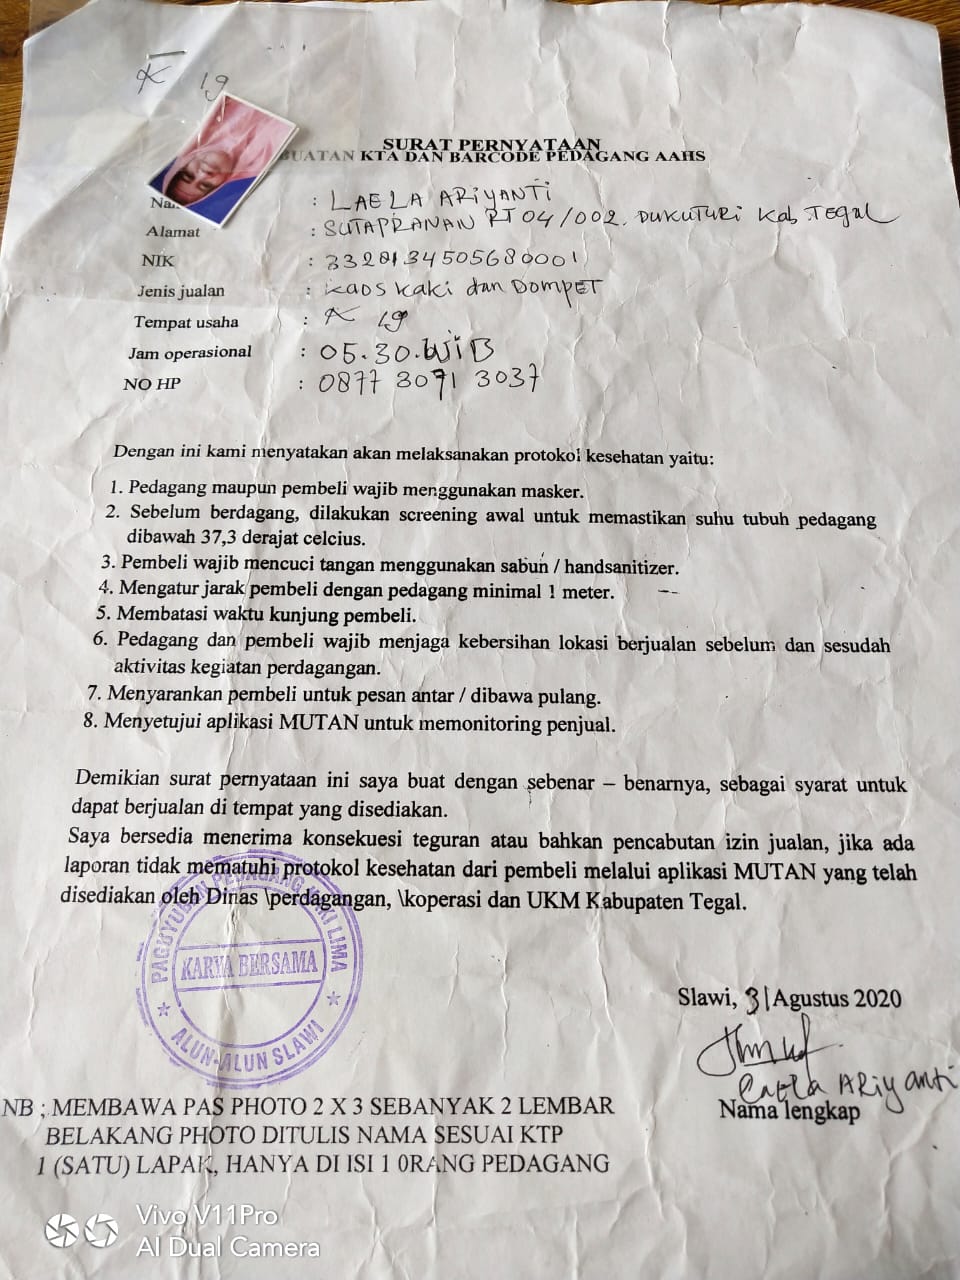 K 19
SURAT PERNYATAAN
BUATAN KTA DAN BARCODE PEDAGANG AAHS
: LAELA ARiYANTI
Alamat : SUTAPRANAN RT 04/002. DUKUTURI Kab Tegal
NIK : 3328134505680001
Jenis jualan : Kaos kaki dan DOMPET
Tempat usaha : K 19
Jam operasional : 05.30.WiB
NO HP : 0877 3071 3037
Dengan ini kami menyatakan akan melaksanakan protokol kesehatan yaitu:
1. Pedagang maupun pembeli wajib menggunakan masker.
2. Sebelum berdagang, dilakukan screening awal untuk memastikan suhu tubuh pedagang
dibawah 37,3 derajat celcius.
3. Pembeli wajib mencuci tangan menggunakan sabun / handsanitizer.
4. Mengatur jarak pembeli dengan pedagang minimal 1 meter.
5. Membatasi waktu kunjung pembeli.
6. Pedagang dan pembeli wajib menjaga kebersihan lokasi berjualan sebelum dan sesudah
aktivitas kegiatan perdagangan.
7. Menyarankan pembeli untuk pesan antar / dibawa pulang.
8. Menyetujui aplikasi MUTAN untuk memonitoring penjual.
Demikian surat pernyataan ini saya buat dengan sebenar – benarnya, sebagai syarat untuk
dapat berjualan di tempat yang disediakan.
Saya bersedia menerima konsekuesi teguran atau bahkan pencabutan izin jualan, jika ada
laporan tidak mematuhi protokol kesehatan dari pembeli melalui aplikasi MUTAN yang telah
disediakan oleh Dinas \perdagangan, \koperasi dan UKM Kabupaten Tegal.
PAGUYUBAN PEDAGANG KAKI LIMA
KARYA BERSAMA
ALUN-ALUN SLAWI
Slawi, 31 Agustus 2020
Laela ARiyanti
Nama lengkap
NB ; MEMBAWA PAS PHOTO 2 X 3 SEBANYAK 2 LEMBAR
BELAKANG PHOTO DITULIS NAMA SESUAI KTP
1 (SATU) LAPAK, HANYA DI ISI 1 0RANG PEDAGANG
Vivo V11Pro
AI Dual Camera